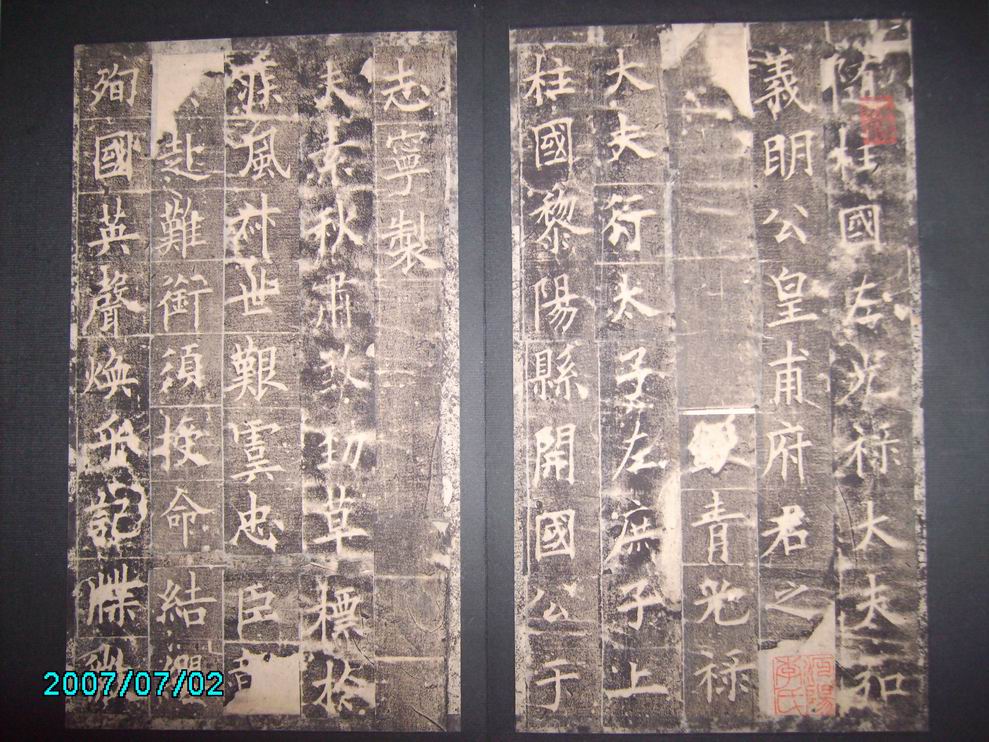 隋柱國左光祿大夫弘
義明公皇甫府君之
青光祿
大夫行太子左庶子上
柱國黎陽縣開國公于
志寧製
夫素秋肅煞勁草標於
疾風叔世艱虞忠臣
赴難銜須授命結纓
殉國英聲煥乎記牒
李氏
2007/07/02